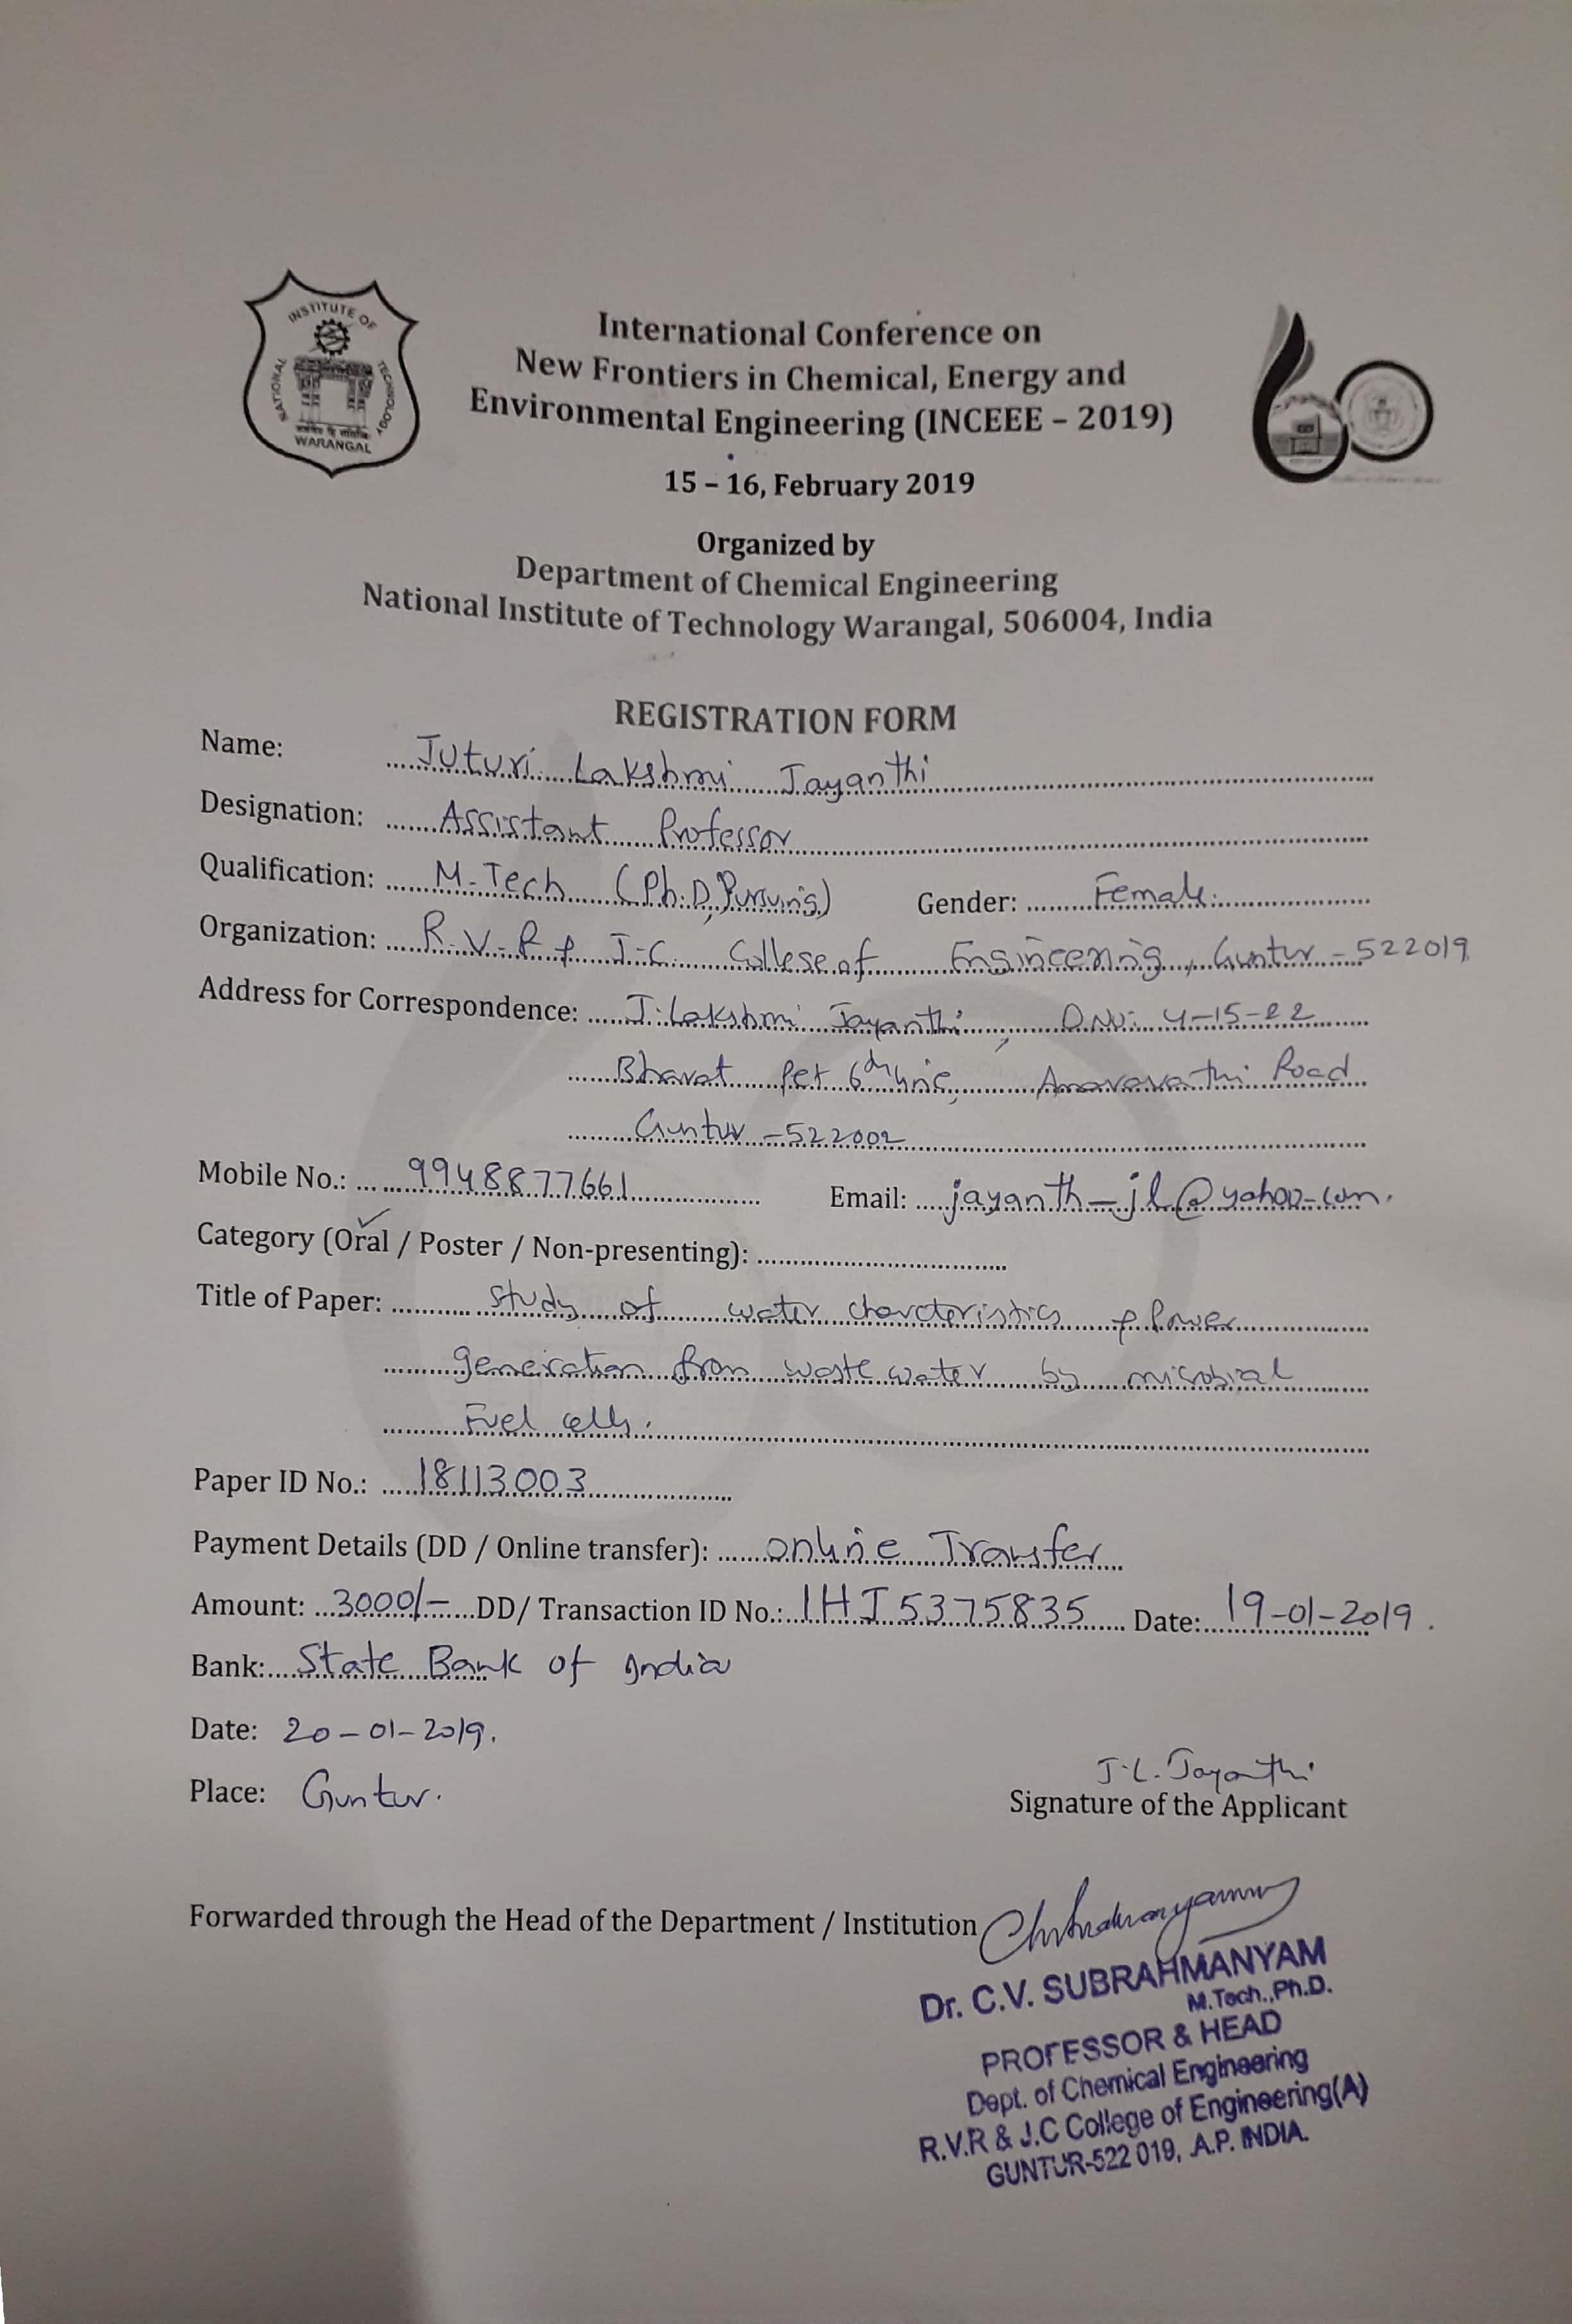 INSTITUTE OF
NATIONAL
TECHNOLOGY
WARANGAL
International Conference on
New Frontiers in Chemical, Energy and
Environmental Engineering (INCEEE – 2019)
15 – 16, February 2019
Organized by
Department of Chemical Engineering
National Institute of Technology Warangal, 506004, India
REGISTRATION FORM
Name: Juturi Lakshmi Jayanthi
Designation: Assistant Professor
Qualification: M.Tech (Ph.D, Pursuing) Gender: Female.
Organization: R.V.R & J.C. College of Engineering, Guntur - 522019
Address for Correspondence: J. Lakshmi Jayanthi, D.No: 4-15-22
Bharat Pet 6th line, Amaravathi Road
Guntur - 522002
Mobile No.: 9948877661 Email: jayanth_jl@yahoo.com.
Category (Oral / Poster / Non-presenting):
Title of Paper: Study of water charcteristics & Power
generation from waste water by microbial
Fuel cells.
Paper ID No.: 18113003
Payment Details (DD / Online transfer): online Transfer
Amount: 3000/- DD/ Transaction ID No.: IHJ5375835 Date: 19-01-2019.
Bank: State Bank of India
Date: 20-01-2019.
Place: Guntur.
J.L. Jayanthi
Signature of the Applicant
Forwarded through the Head of the Department / Institution
Dr. C.V. SUBRAHMANYAM
M.Tech.,Ph.D.
PROFESSOR & HEAD
Dept. of Chemical Engineering
R.V.R & J.C College of Engineering(A)
GUNTUR-522 019, A.P. INDIA.